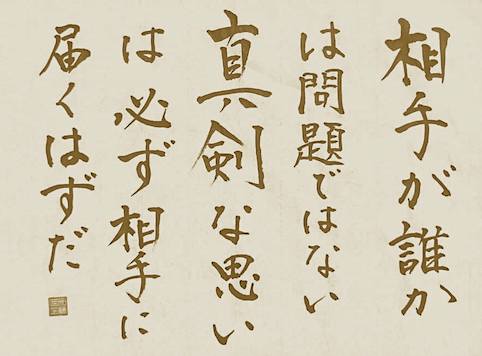 相手が誰か
は問題ではない
真剣な思い
は必ず相手に
届くはずだ